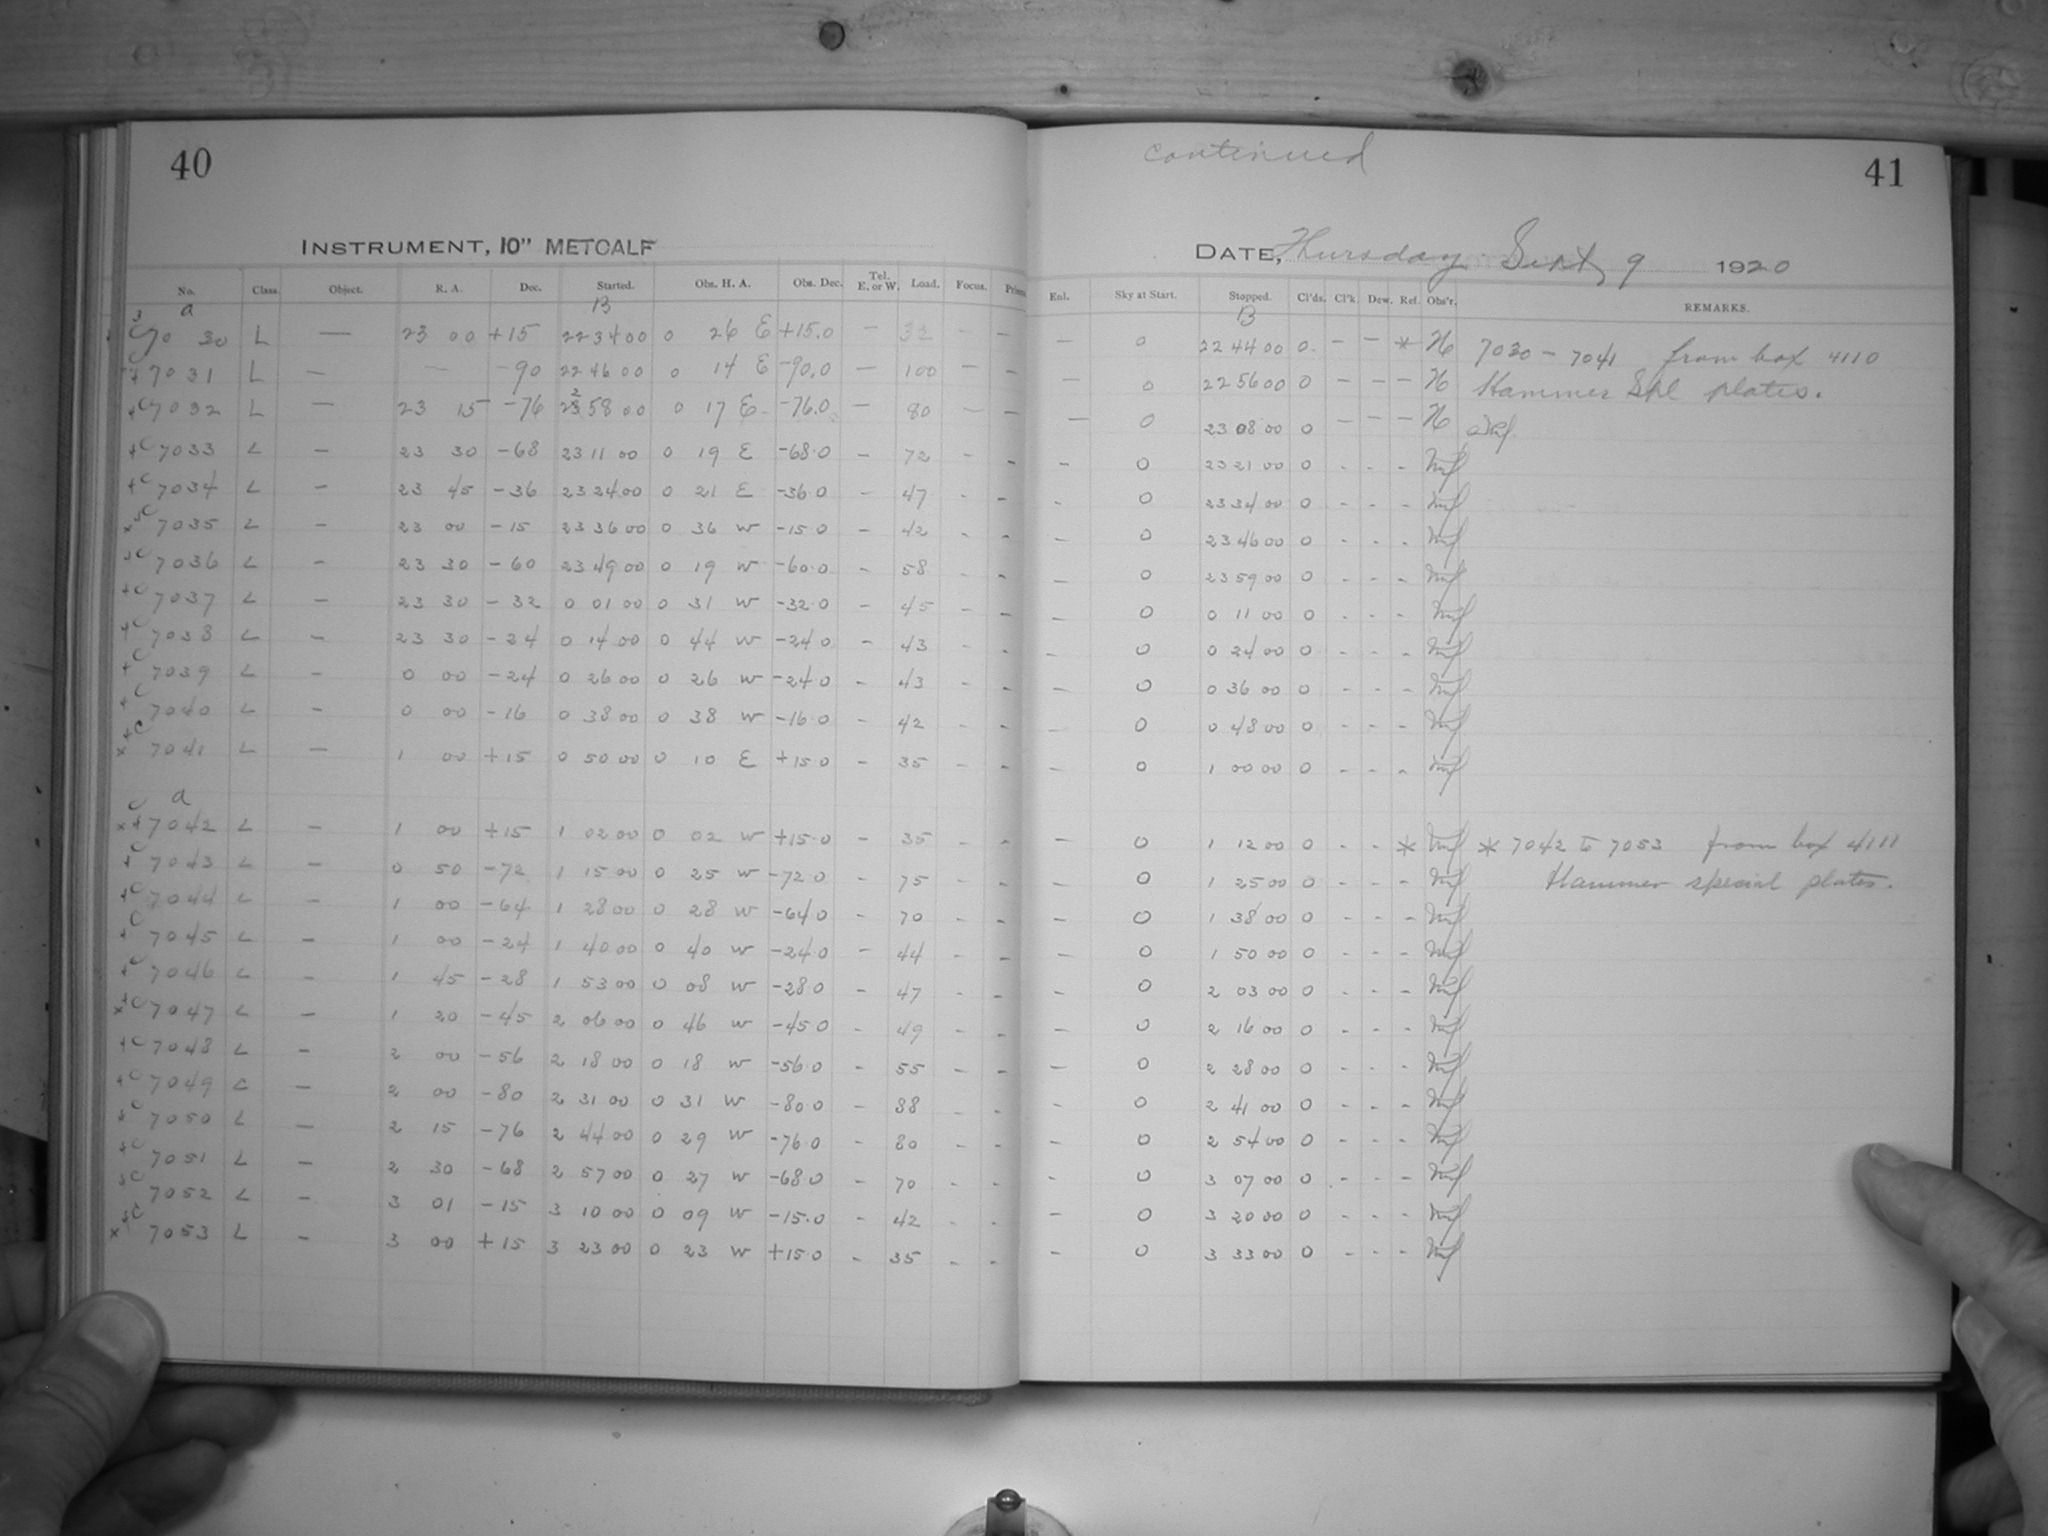 40
continued
41
INSTRUMENT, 10" METCALF
DATE, Thursday Sept 9 1920
No. Class. Object. R. A. Dec. Started. Obs. H. A. Obs. Dec. Tel. E. or W. Load. Focus. Enl. Sky at Start. Stopped. Cl'ds. Cl'k. Dew. Ref. Obs'r. REMARKS.
a B B
7030 L — 23 00 +15 22 34 00 0 26 E +15.0 — 32 — — — 0 22 44 00 0 — — * H 7030 - 7041 from box 4110
7031 L — — -90 22 46 00 0 14 E -90.0 — 100 — — — 0 22 56 00 0 — — — H Hammer Spl plates.
7032 L — 23 15 -76 22 58 00 0 17 E -76.0 — 80 — — — 0 23 08 00 0 — — — H
7033 L — 23 30 -68 23 11 00 0 19 E -68.0 — 72 - - - 0 23 21 00 0 - - -
7034 L — 23 45 -36 23 24 00 0 21 E -36.0 - 47 - - - 0 23 34 00 0 - - -
7035 L - 23 00 -15 23 36 00 0 36 W -15.0 - 42 - - - 0 23 46 00 0 - - -
7036 L - 23 30 -60 23 49 00 0 19 W -60.0 - 58 - - - 0 23 59 00 0 - - -
7037 L - 23 30 -32 0 01 00 0 31 W -32.0 - 45 - - - 0 0 11 00 0 - - -
7038 L - 23 30 -24 0 14 00 0 44 W -24.0 - 43 - - - 0 0 24 00 0 - - -
7039 L - 0 00 -24 0 26 00 0 26 W -24.0 - 43 - - - 0 0 36 00 0 - - -
7040 L - 0 00 -16 0 38 00 0 38 W -16.0 - 42 - - - 0 0 48 00 0 - - -
7041 L - 1 00 +15 0 50 00 0 10 E +15.0 - 35 - - - 0 1 00 00 0 - - -
a
7042 L - 1 00 +15 1 02 00 0 02 W +15.0 - 35 - - - 0 1 12 00 0 - - * * 7042 to 7053 from box 4111
7043 L - 0 50 -72 1 15 00 0 25 W -72.0 - 75 - - - 0 1 25 00 0 - - - Hammer special plates.
7044 L - 1 00 -64 1 28 00 0 28 W -64.0 - 70 - - - 0 1 38 00 0 - - -
7045 L - 1 00 -24 1 40 00 0 40 W -24.0 - 44 - - - 0 1 50 00 0 - - -
7046 L - 1 45 -28 1 53 00 0 08 W -28.0 - 47 - - - 0 2 03 00 0 - - -
7047 L - 1 20 -45 2 06 00 0 46 W -45.0 - 49 - - - 0 2 16 00 0 - - -
7048 L - 2 00 -56 2 18 00 0 18 W -56.0 - 55 - - - 0 2 28 00 0 - - -
7049 L - 2 00 -80 2 31 00 0 31 W -80.0 - 88 - - - 0 2 41 00 0 - - -
7050 L - 2 15 -76 2 44 00 0 29 W -76.0 - 80 - - - 0 2 54 00 0 - - -
7051 L - 2 30 -68 2 57 00 0 27 W -68.0 - 70 - - - 0 3 07 00 0 - - -
7052 L - 3 01 -15 3 10 00 0 09 W -15.0 - 42 - - - 0 3 20 00 0 - - -
7053 L - 3 00 +15 3 23 00 0 23 W +15.0 - 35 - - - 0 3 33 00 0 - - -